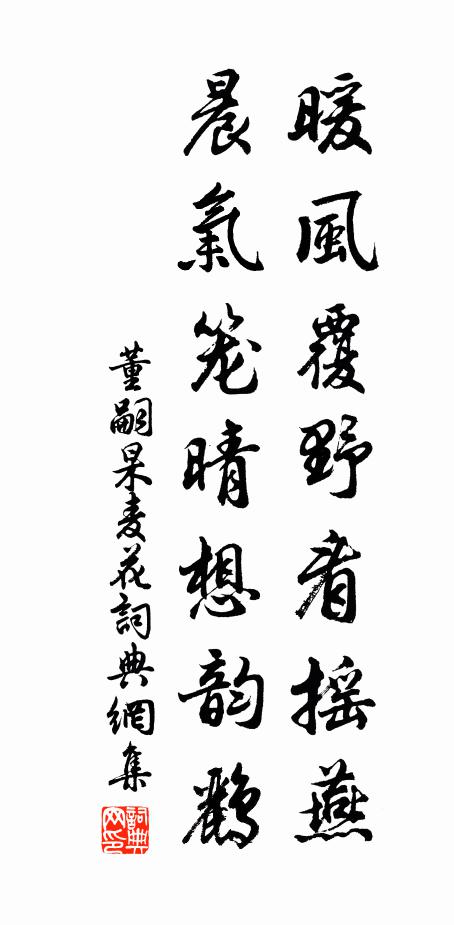 暖風覆野看摇燕
晨氣笼晴想韵鸝
董嗣杲麦花詞典網集
詞典网印